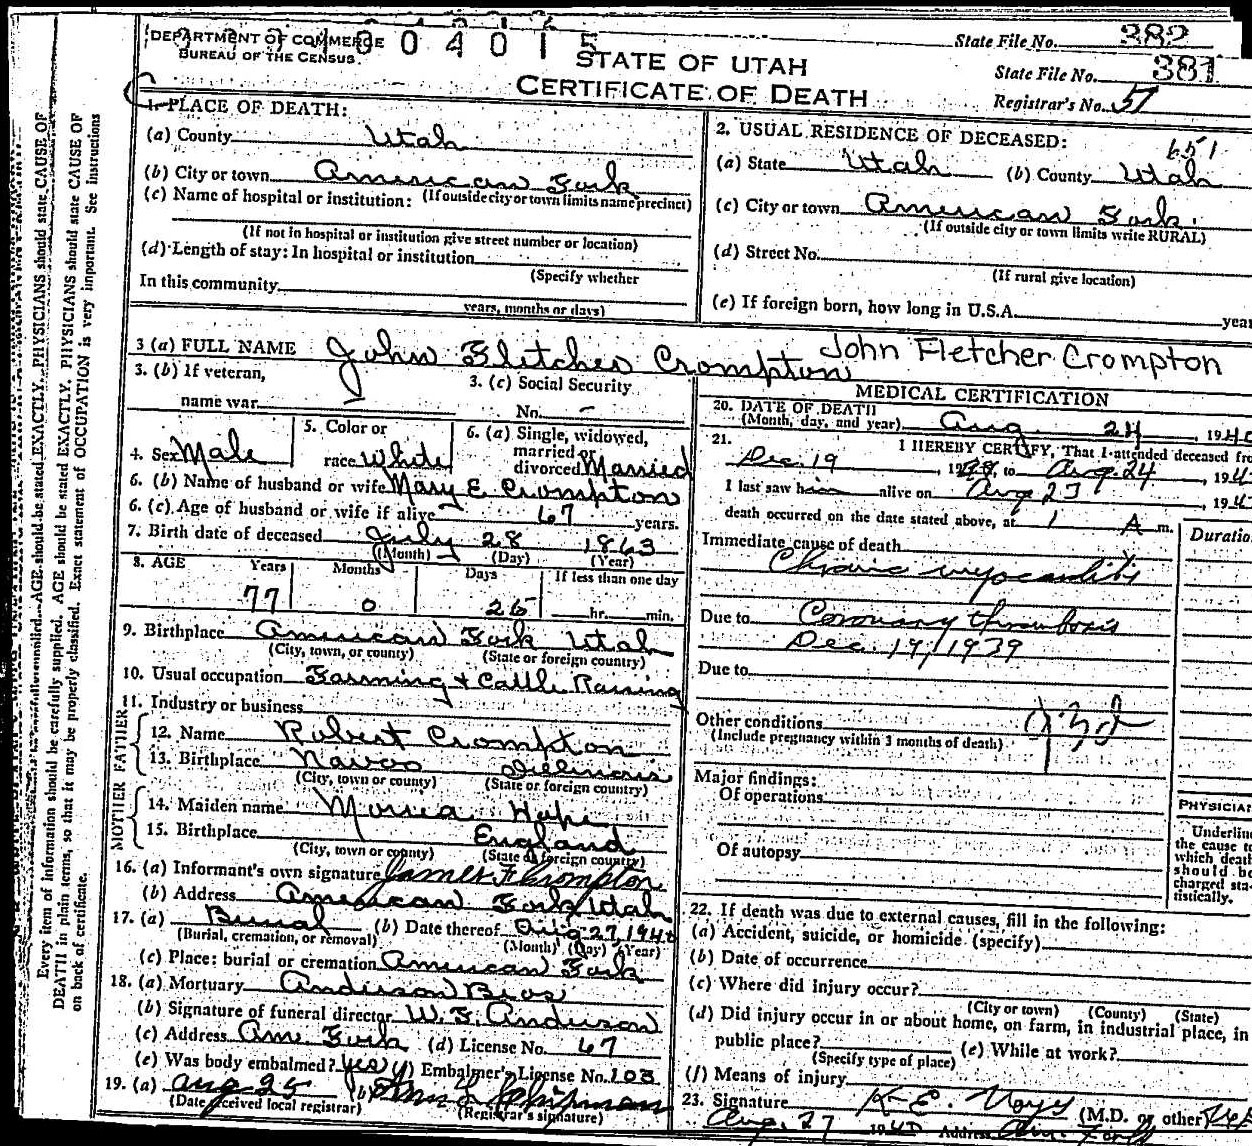 1004015
DEPARTMENT OF COMMERCE
BUREAU OF THE CENSUS
STATE OF UTAH
CERTIFICATE OF DEATH
State File No. 382
State File No. 381
Registrar's No. 51
1. PLACE OF DEATH:
(a) County Utah
(b) City or town American Fork
(c) Name of hospital or institution: (If outside city or town limits name precinct)
(If not in hospital or institution give street number or location)
(d) Length of stay: In hospital or institution
(Specify whether
In this community
years, months or days)
2. USUAL RESIDENCE OF DECEASED:
651
(a) State Utah (b) County Utah
(c) City or town American Fork
(If outside city or town limits write RURAL)
(d) Street No.
(If rural give location)
(e) If foreign born, how long in U.S.A. year
3 (a) FULL NAME John Fletcher Crompton John Fletcher Crompton
3. (b) If veteran,
name war
3. (c) Social Security
No. -
4. Sex Male
5. Color or
race White
6. (a) Single, widowed,
married or
divorced Married
6. (b) Name of husband or wife Mary E Crompton
6. (c) Age of husband or wife if alive 67 years.
7. Birth date of deceased July 28 1863
(Month) (Day) (Year)
8. AGE Years Months Days If less than one day
77 0 26 hr. min.
9. Birthplace American Fork Utah
(City, town, or county) (State or foreign country)
10. Usual occupation Farming + Cattle Raising
11. Industry or business
FATHER
12. Name Robert Crompton
13. Birthplace Navoo Illinois
(City, town or county) (State or foreign country)
MOTHER
14. Maiden name
15. Birthplace England
(City, town or county) (State or foreign country)
16. (a) Informant's own signature James F Crompton
(b) Address American Fork Utah
17. (a) Burial (b) Date thereof Aug 27, 1940
(Burial, cremation, or removal) (Month) (Day) (Year)
(c) Place: burial or cremation American Fork
18. (a) Mortuary Anderson Bros
(b) Signature of funeral director W. F. Anderson
(c) Address Am. Fork (d) License No. 67
(e) Was body embalmed? Yes (f) Embalmer's License No. 103
19. (a) Aug 25 (b)
(Date received local registrar) (Registrar's signature)
MEDICAL CERTIFICATION
20. DATE OF DEATH
(Month, day, and year) Aug. 24, 1940
21. I HEREBY CERTIFY, That I attended deceased from
Dec. 19, to Aug. 24, 194
I last saw him alive on Aug 23, 194
death occurred on the date stated above, at 1 A m.
Duratio
Immediate cause of death
Chronic myocarditis
Due to Coronary thrombosis
Dec. 19, 1939
Due to
Other conditions
(Include pregnancy within 3 months of death)
Major findings:
Of operations
Of autopsy
PHYSICIAN
Underline
the cause to
which death
should be
charged sta-
tistically.
22. If death was due to external causes, fill in the following:
(a) Accident, suicide, or homicide (specify)
(b) Date of occurrence
(c) Where did injury occur?
(City or town) (County) (State)
(d) Did injury occur in or about home, on farm, in industrial place, in
public place?
(Specify type of place) (e) While at work?
(f) Means of injury
23. Signature K. E. Noyes (M.D. or other)
Aug. 27 1940 Address Am. Fork
Every item of information should be carefully supplied. AGE should be stated EXACTLY. PHYSICIANS should state CAUSE OF
DEATH in plain terms, so that it may be properly classified. Exact statement of OCCUPATION is very important. See instructions
on back of certificate.